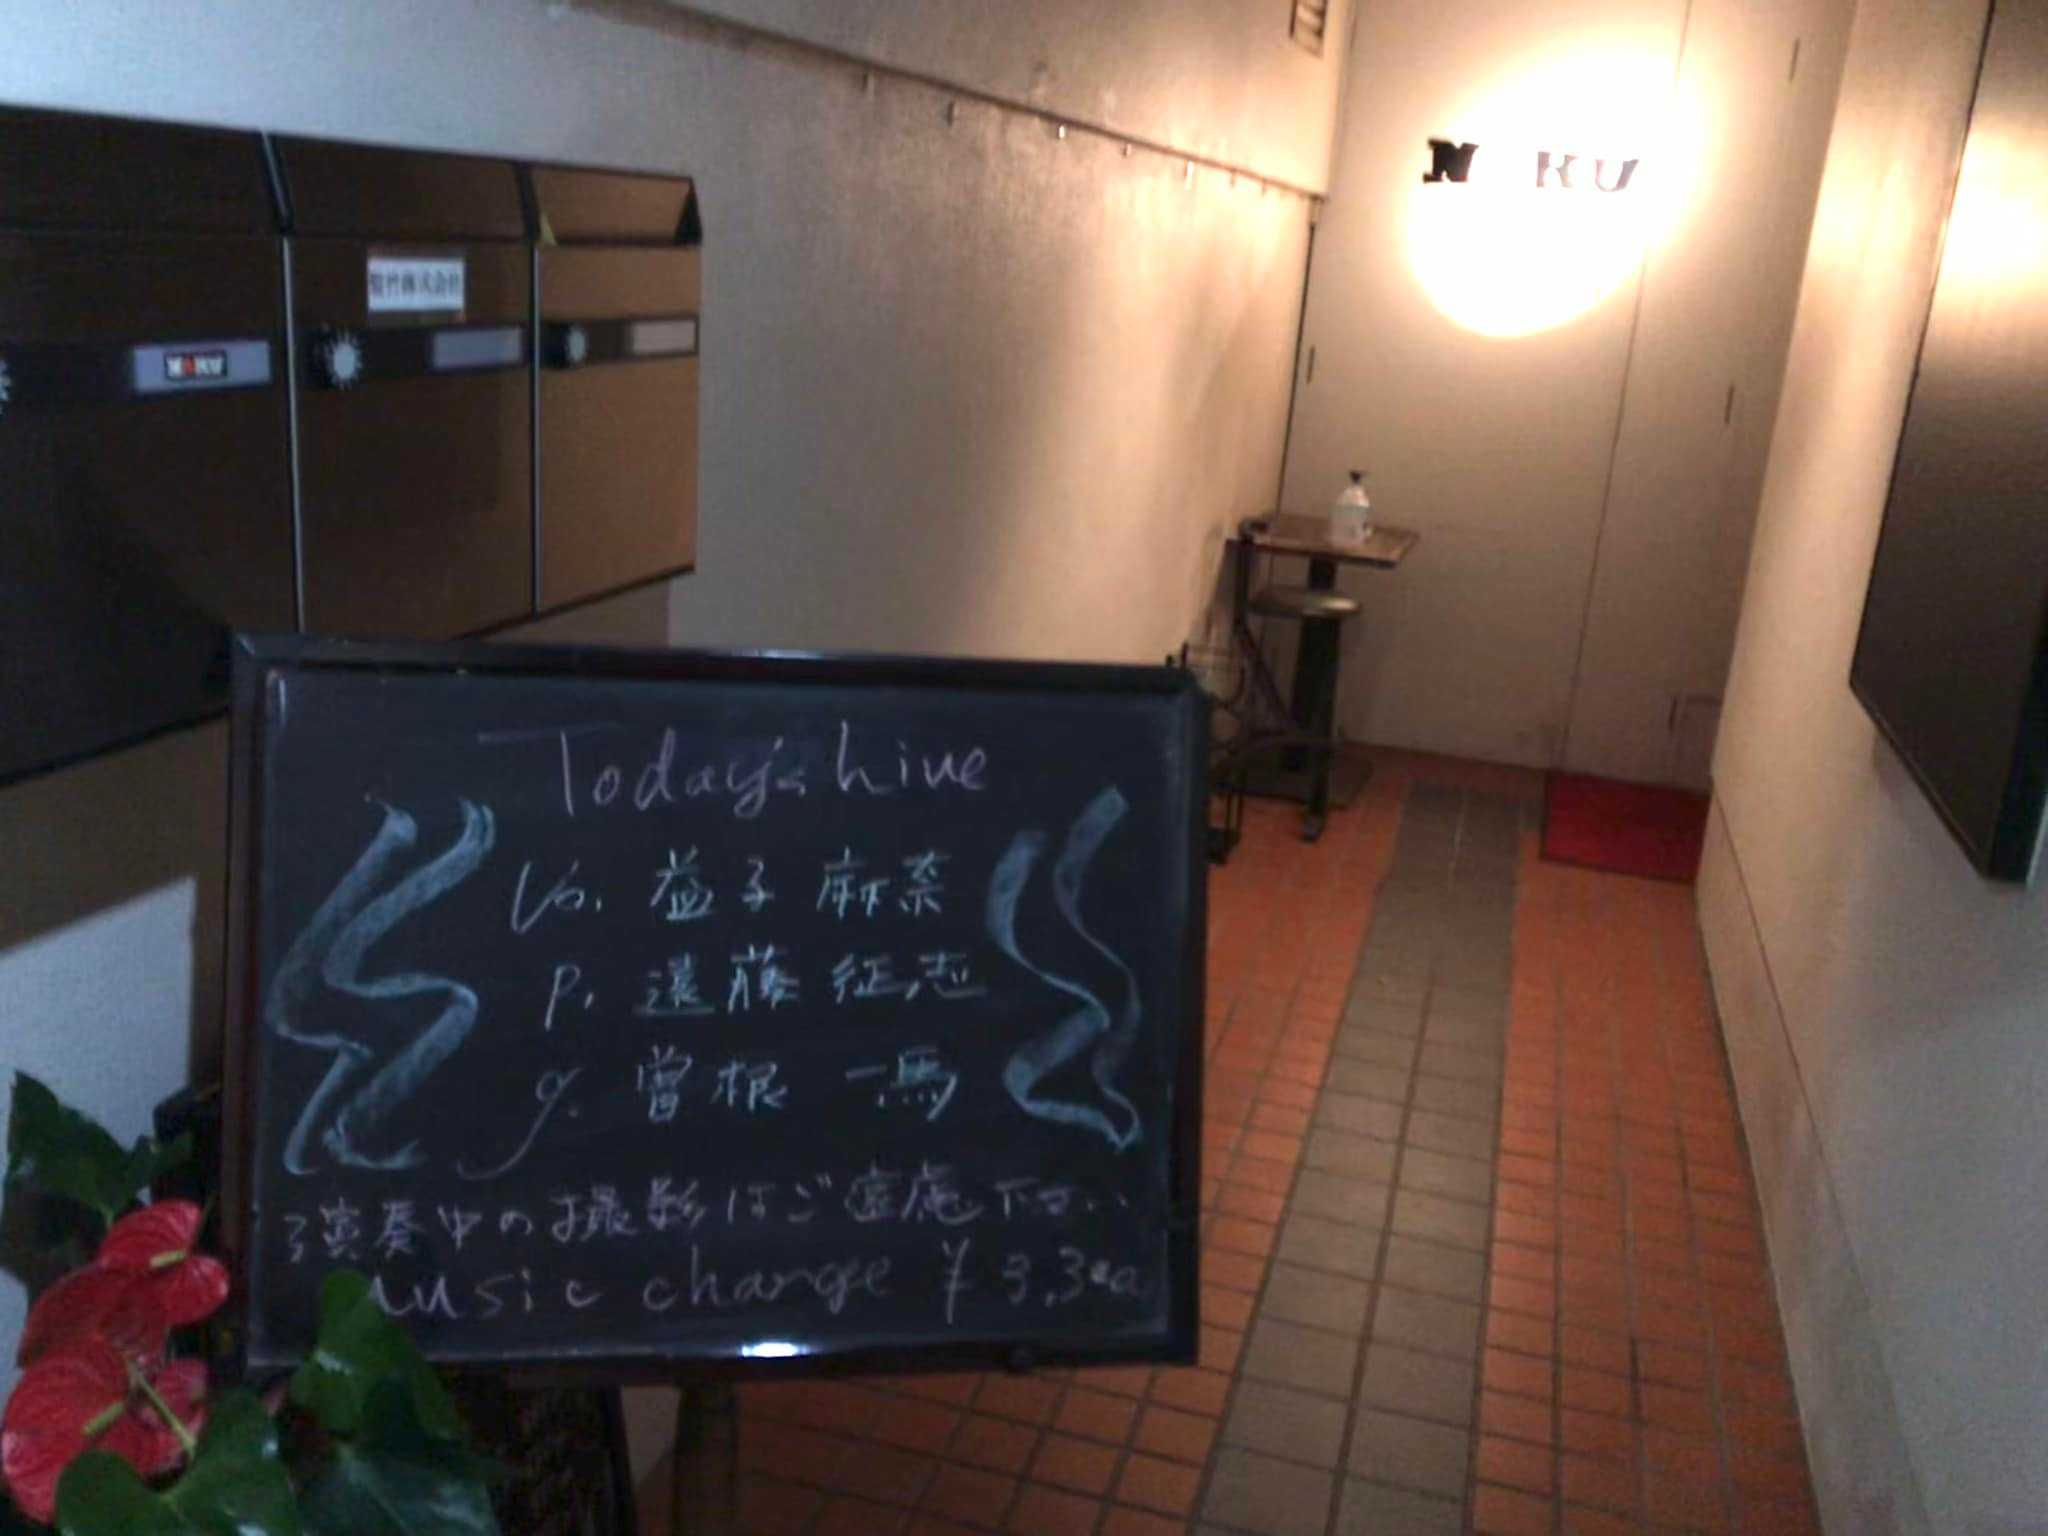 NARU
株式会社
NARU
Today's Live
Vo. 益子 麻奈
p. 遠藤 征志
g. 曽根 一馬
演奏中の撮影はご遠慮下さい
Music charge ¥3,300